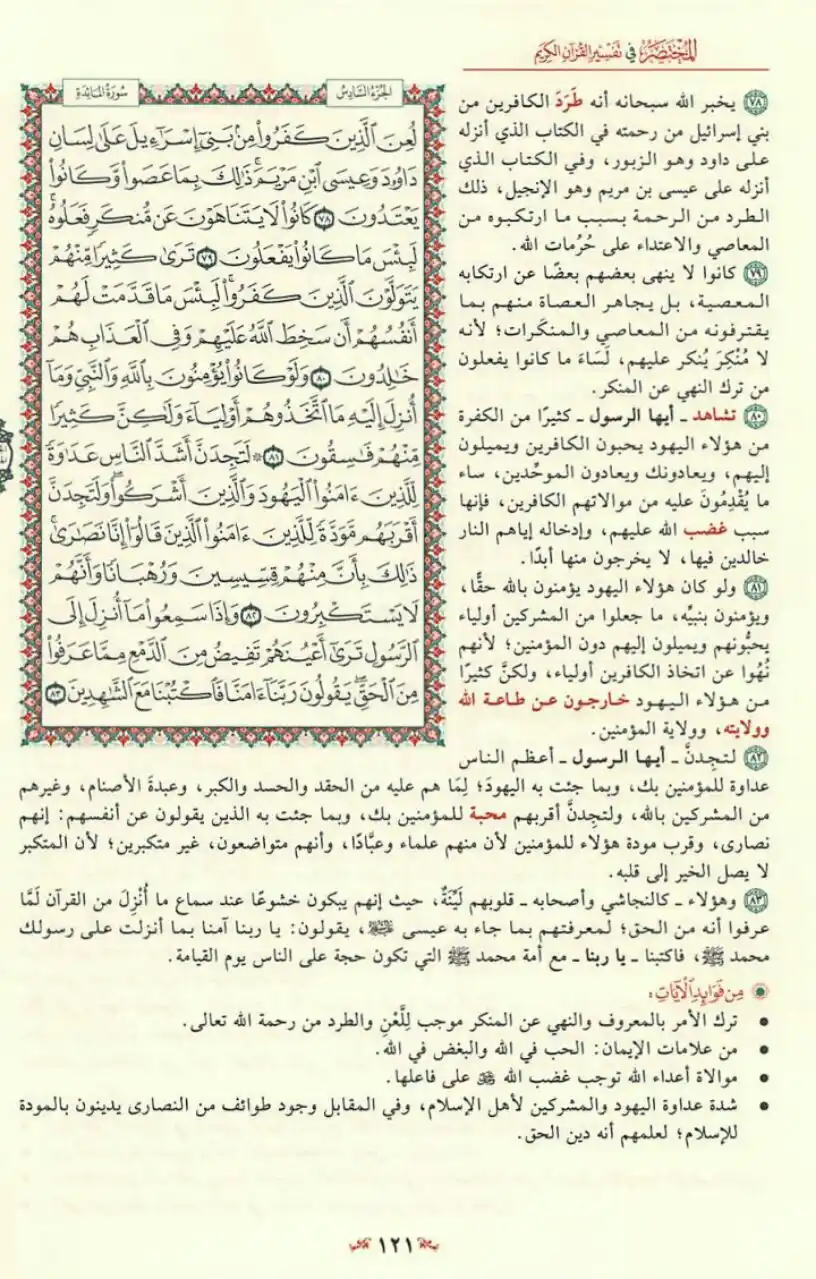 المختصر في تفسير القرآن الكريم
الجزء السادس
سورة المائدة
لُعِنَ ٱلَّذِينَ كَفَرُوا۟ مِنۢ بَنِىٓ إِسْرَٰٓءِيلَ عَلَىٰ لِسَانِ
دَاوُۥدَ وَعِيسَى ٱبْنِ مَرْيَمَ ۚ ذَٰلِكَ بِمَا عَصَوا۟ وَّكَانُوا۟
يَعْتَدُونَ ٧٨ كَانُوا۟ لَا يَتَنَاهَوْنَ عَن مُّنكَرٍ فَعَلُوهُ ۚ
لَبِئْسَ مَا كَانُوا۟ يَفْعَلُونَ ٧٩ تَرَىٰ كَثِيرًا مِّنْهُمْ
يَتَوَلَّوْنَ ٱلَّذِينَ كَفَرُوا۟ ۚ لَبِئْسَ مَا قَدَّمَتْ لَهُمْ
أَنفُسُهُمْ أَن سَخِطَ ٱللَّهُ عَلَيْهِمْ وَفِى ٱلْعَذَابِ هُمْ
خَٰلِدُونَ ٨٠ وَلَوْ كَانُوا۟ يُؤْمِنُونَ بِٱللَّهِ وَٱلنَّبِىِّ وَمَآ
أُنزِلَ إِلَيْهِ مَا ٱتَّخَذُوهُمْ أَوْلِيَآءَ وَلَٰكِنَّ كَثِيرًا
مِّنْهُمْ فَٰسِقُونَ ٨١ ۞ لَتَجِدَنَّ أَشَدَّ ٱلنَّاسِ عَدَٰوَةً
لِّلَّذِينَ ءَامَنُوا۟ ٱلْيَهُودَ وَٱلَّذِينَ أَشْرَكُوا۟ ۖ وَلَتَجِدَنَّ
أَقْرَبَهُم مَّوَدَّةً لِّلَّذِينَ ءَامَنُوا۟ ٱلَّذِينَ قَالُوٓا۟ إِنَّا نَصَٰرَىٰ ۚ
ذَٰلِكَ بِأَنَّ مِنْهُمْ قِسِّيسِينَ وَرُهْبَانًا وَأَنَّهُمْ
لَا يَسْتَكْبِرُونَ ٨٢ وَإِذَا سَمِعُوا۟ مَآ أُنزِلَ إِلَى
ٱلرَّسُولِ تَرَىٰٓ أَعْيُنَهُمْ تَفِيضُ مِنَ ٱلدَّمْعِ مِمَّا عَرَفُوا۟
مِنَ ٱلْحَقِّ ۖ يَقُولُونَ رَبَّنَآ ءَامَنَّا فَٱكْتُبْنَا مَعَ ٱلشَّٰهِدِينَ ٨٣
٧٨ يخبر الله سبحانه أنه طَرَدَ الكافرين من
بني إسرائيل من رحمته في الكتاب الذي أنزله
على داود وهو الزبور، وفي الكتاب الذي
أنزله على عيسى بن مريم وهو الإنجيل، ذلك
الطرد من الرحمة بسبب ما ارتكبوه من
المعاصي والاعتداء على حُرُمات الله.
٧٩ كانوا لا ينهى بعضهم بعضًا عن ارتكابه
المعصية، بل يجاهر العصاة منهم بما
يقترفونه من المعاصي والمنكَرات؛ لأنه
لا مُنْكِرَ يُنكر عليهم، لَسَاءَ ما كانوا يفعلون
من ترك النهي عن المنكر.
٨٠ تشاهد ـ أيها الرسول ـ كثيرًا من الكفرة
من هؤلاء اليهود يحبون الكافرين ويميلون
إليهم، ويعادونك ويعادون الموحِّدين، ساء
ما يُقْدِمُونَ عليه من موالاتهم الكافرين، فإنها
سبب غضب الله عليهم، وإدخاله إياهم النار
خالدين فيها، لا يخرجون منها أبدًا.
٨١ ولو كان هؤلاء اليهود يؤمنون بالله حقًّا،
ويؤمنون بنبيِّه، ما جعلوا من المشركين أولياء
يحبُّونهم ويميلون إليهم دون المؤمنين؛ لأنهم
نُهُوا عن اتخاذ الكافرين أولياء، ولكنَّ كثيرًا
من هؤلاء اليهود خارجون عن طاعة الله
وولايته، وولاية المؤمنين.
٨٢ لتجِدنَّ ـ أيها الرسول ـ أعظم الناس
عداوة للمؤمنين بك، وبما جئت به اليهودَ؛ لِمَا هم عليه من الحقد والحسد والكبر، وعبدةَ الأصنام، وغيرهم
من المشركين بالله، ولتجِدنَّ أقربهم محبة للمؤمنين بك، وبما جئت به الذين يقولون عن أنفسهم: إنهم
نصارى، وقرب مودة هؤلاء للمؤمنين لأن منهم علماء وعبَّادًا، وأنهم متواضعون، غير متكبرين؛ لأن المتكبر
لا يصل الخير إلى قلبه.
٨٣ وهؤلاء ـ كالنجاشي وأصحابه ـ قلوبهم لَيِّنَةٌ، حيث إنهم يبكون خشوعًا عند سماع ما أُنْزِلَ من القرآن لَمَّا
عرفوا أنه من الحق؛ لمعرفتهم بما جاء به عيسى عليه السلام، يقولون: يا ربنا آمنا بما أنزلت على رسولك
محمد ﷺ، فاكتبنا ـ يا ربنا ـ مع أمة محمد ﷺ التي تكون حجة على الناس يوم القيامة.
من فوائد الآيات:
• ترك الأمر بالمعروف والنهي عن المنكر موجب لِلَّعْنِ والطرد من رحمة الله تعالى.
• من علامات الإيمان: الحب في الله والبغض في الله.
• موالاة أعداء الله توجب غضب الله ﷻ على فاعلها.
• شدة عداوة اليهود والمشركين لأهل الإسلام، وفي المقابل وجود طوائف من النصارى يدينون بالمودة
للإسلام؛ لعلمهم أنه دين الحق.
١٢١